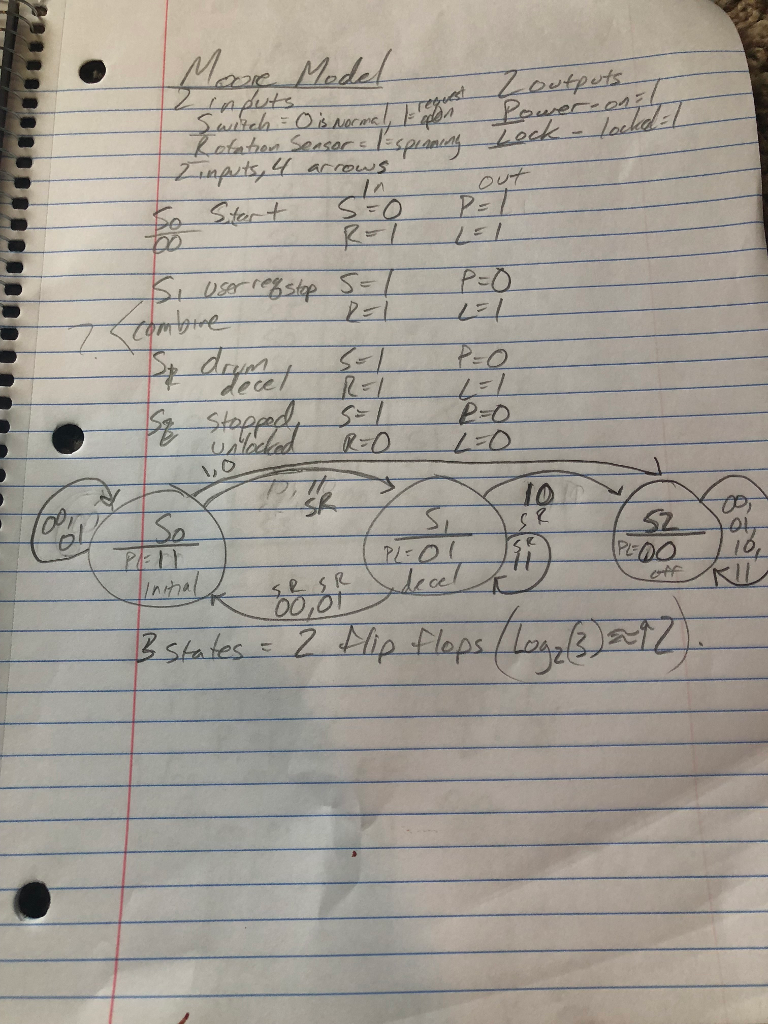 Moore Model
2 inputs
2 outputs
Switch = 0 is normal, 1 = request open
Power - on = 1
Rotation Sensor = 1 = spinning
Lock - locked = 1
2 inputs, 4 arrows
In out
S0 Start S=0 P=1
00 R=1 L=1
S1 user req stop S=1 P=0
R=1 L=1
? < combine
drum S=1 P=0
decel R=1 L=1
stopped, S=1 P=0
unlocked R=0 L=0
1,0
00,
01
S0
PL=11
initial
11
SR
S1
PL=01
decel
10
SR
SR
11
S2
PL=00
off
00,
01,
10,
11
SR SR
00,01
3 states = 2 flip flops (Log2(3) ≈↑2).